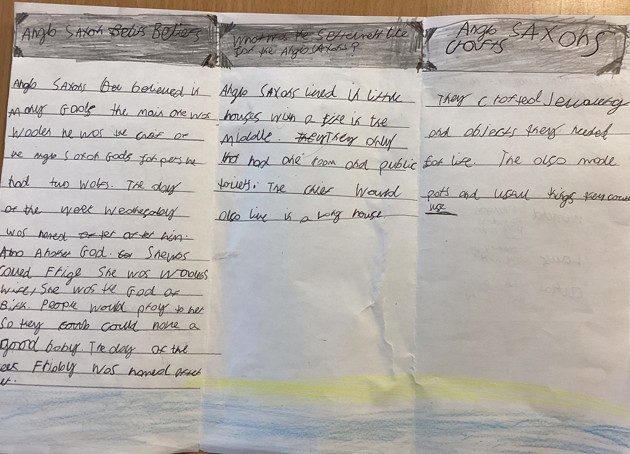 Anglo Saxon Beliers
Anglo Saxons believed in
many Gods the main one was
Woden he was the cheif of
the anglo Saxon Gods for pets he
had two wolfs. The day
of the week Wednesday
was named after him.
Also Another God. She was
called Frige She was Wodens
wife, She was the God of
Birth. People would pray to her
So they could have a
good baby. The day of the
eek Friday was named after
er.
What was the Settlement like
for the Anglo Saxons?
Anglo Saxons lived in little
houses with a fire in the
middle. They only
had one room and public
toilets. The chief Would
also live in a long house
Anglo SAXons
Crafts
They crafted Jewelery
and objects they needed
for life. The also made
pots and useful things they could
use